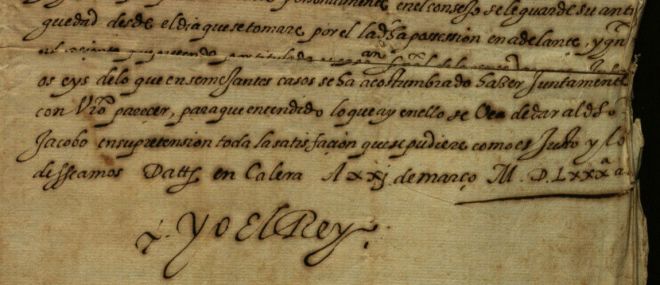 personalmente en el consejo se le guarde su anti
guedad desde el dia que se tomare por el la dha possession en adelante, y qn
os eys de lo que en semejantes casos se ha acostumbrado haber Juntamente
con Vro parecer, para que entendido lo que ay en ello se Vea de dar al dho
Jacobo en su pretension toda la satisfaçion que se pudiere como es Justo y lo
desseamos Datts en Calera A xxj de março M. D. Lxxxª
Yo El Rey